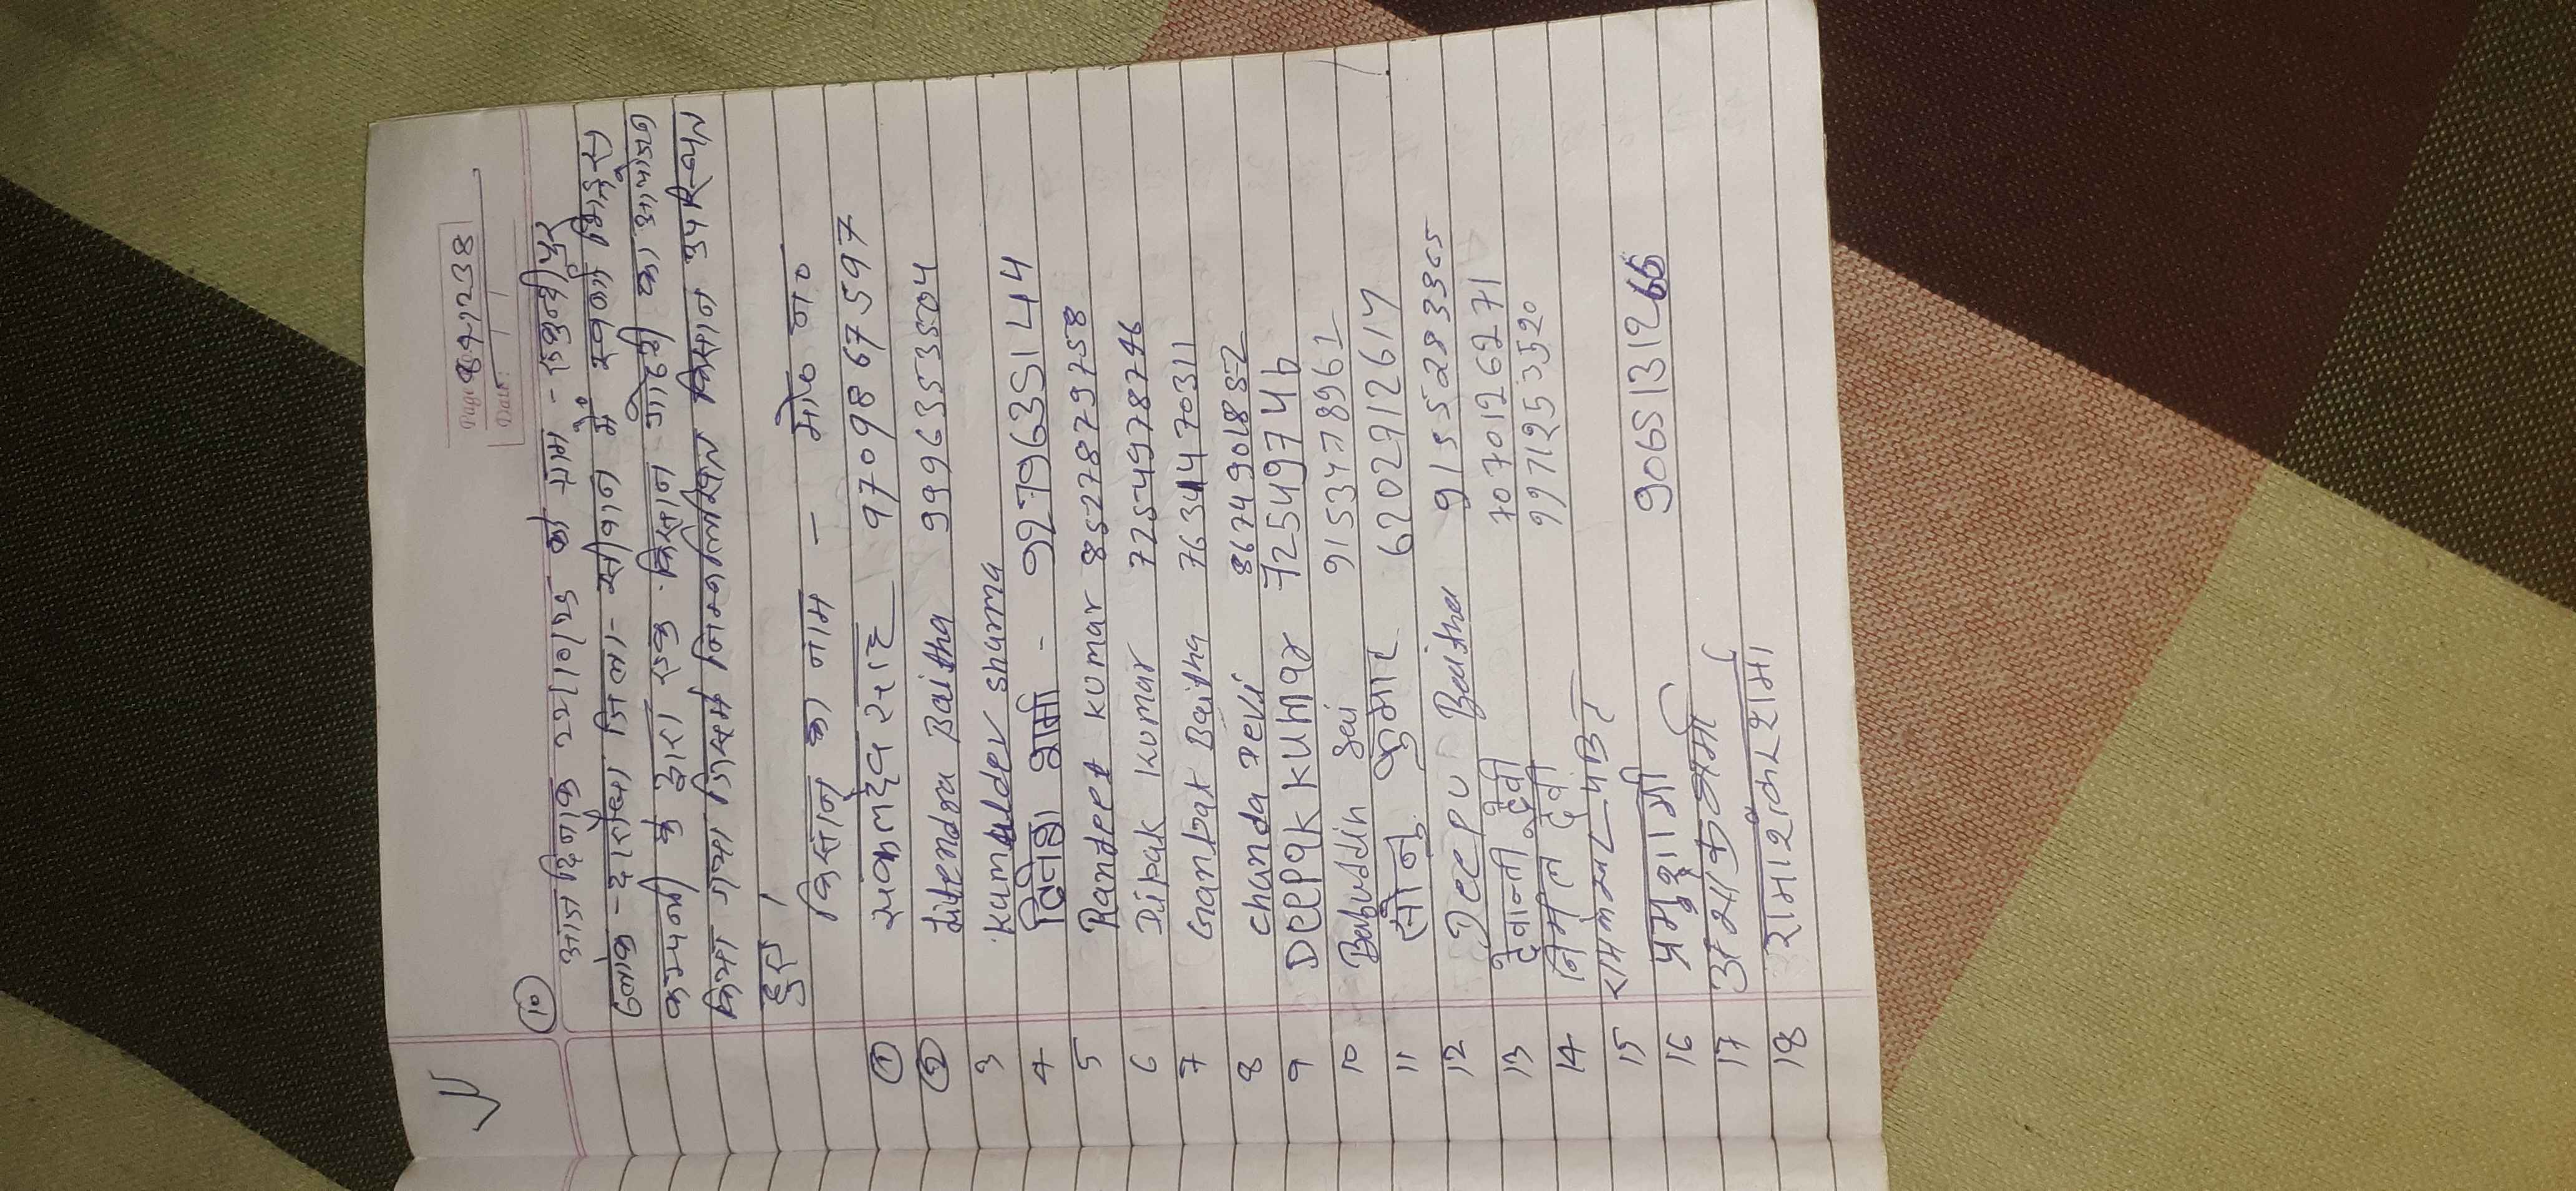 Page: 891238
Date:
10
आज दिनांक 27/01/28 को ग्राम -
ब्लॉक - दारौंधा जिला - सीवान में स्वर्णा सिड्स
कम्पनी के द्वारा एक किसान गोष्ठी का आयोजन
किया गया जिसमें निम्नलिखित किसान उपस्थित
हुए।
किसान का नाम - मो० न०
1 सकलदेव राउ 9709867597
2 Jitendra Baitha 9996353504
3 Kumulder sharma
4 दिनेश शर्मा - 9279635144
5 Randeet kumar 8527879758
6 Dipak kumar 7254978746
7 Ganpat Baitha 7634470311
8 chanda Devi 8674901852
9 DEEPAK KUMAR 72549746
10 Babuddin sai 9153478961
11 सोनू कुमार 6202912614
12 Deepu Baitha 9155283365
13 देवान्ती देवी 7070126271
14 निर्मल देवी 9971253520
15 पंडित
16 9065131265
17
18